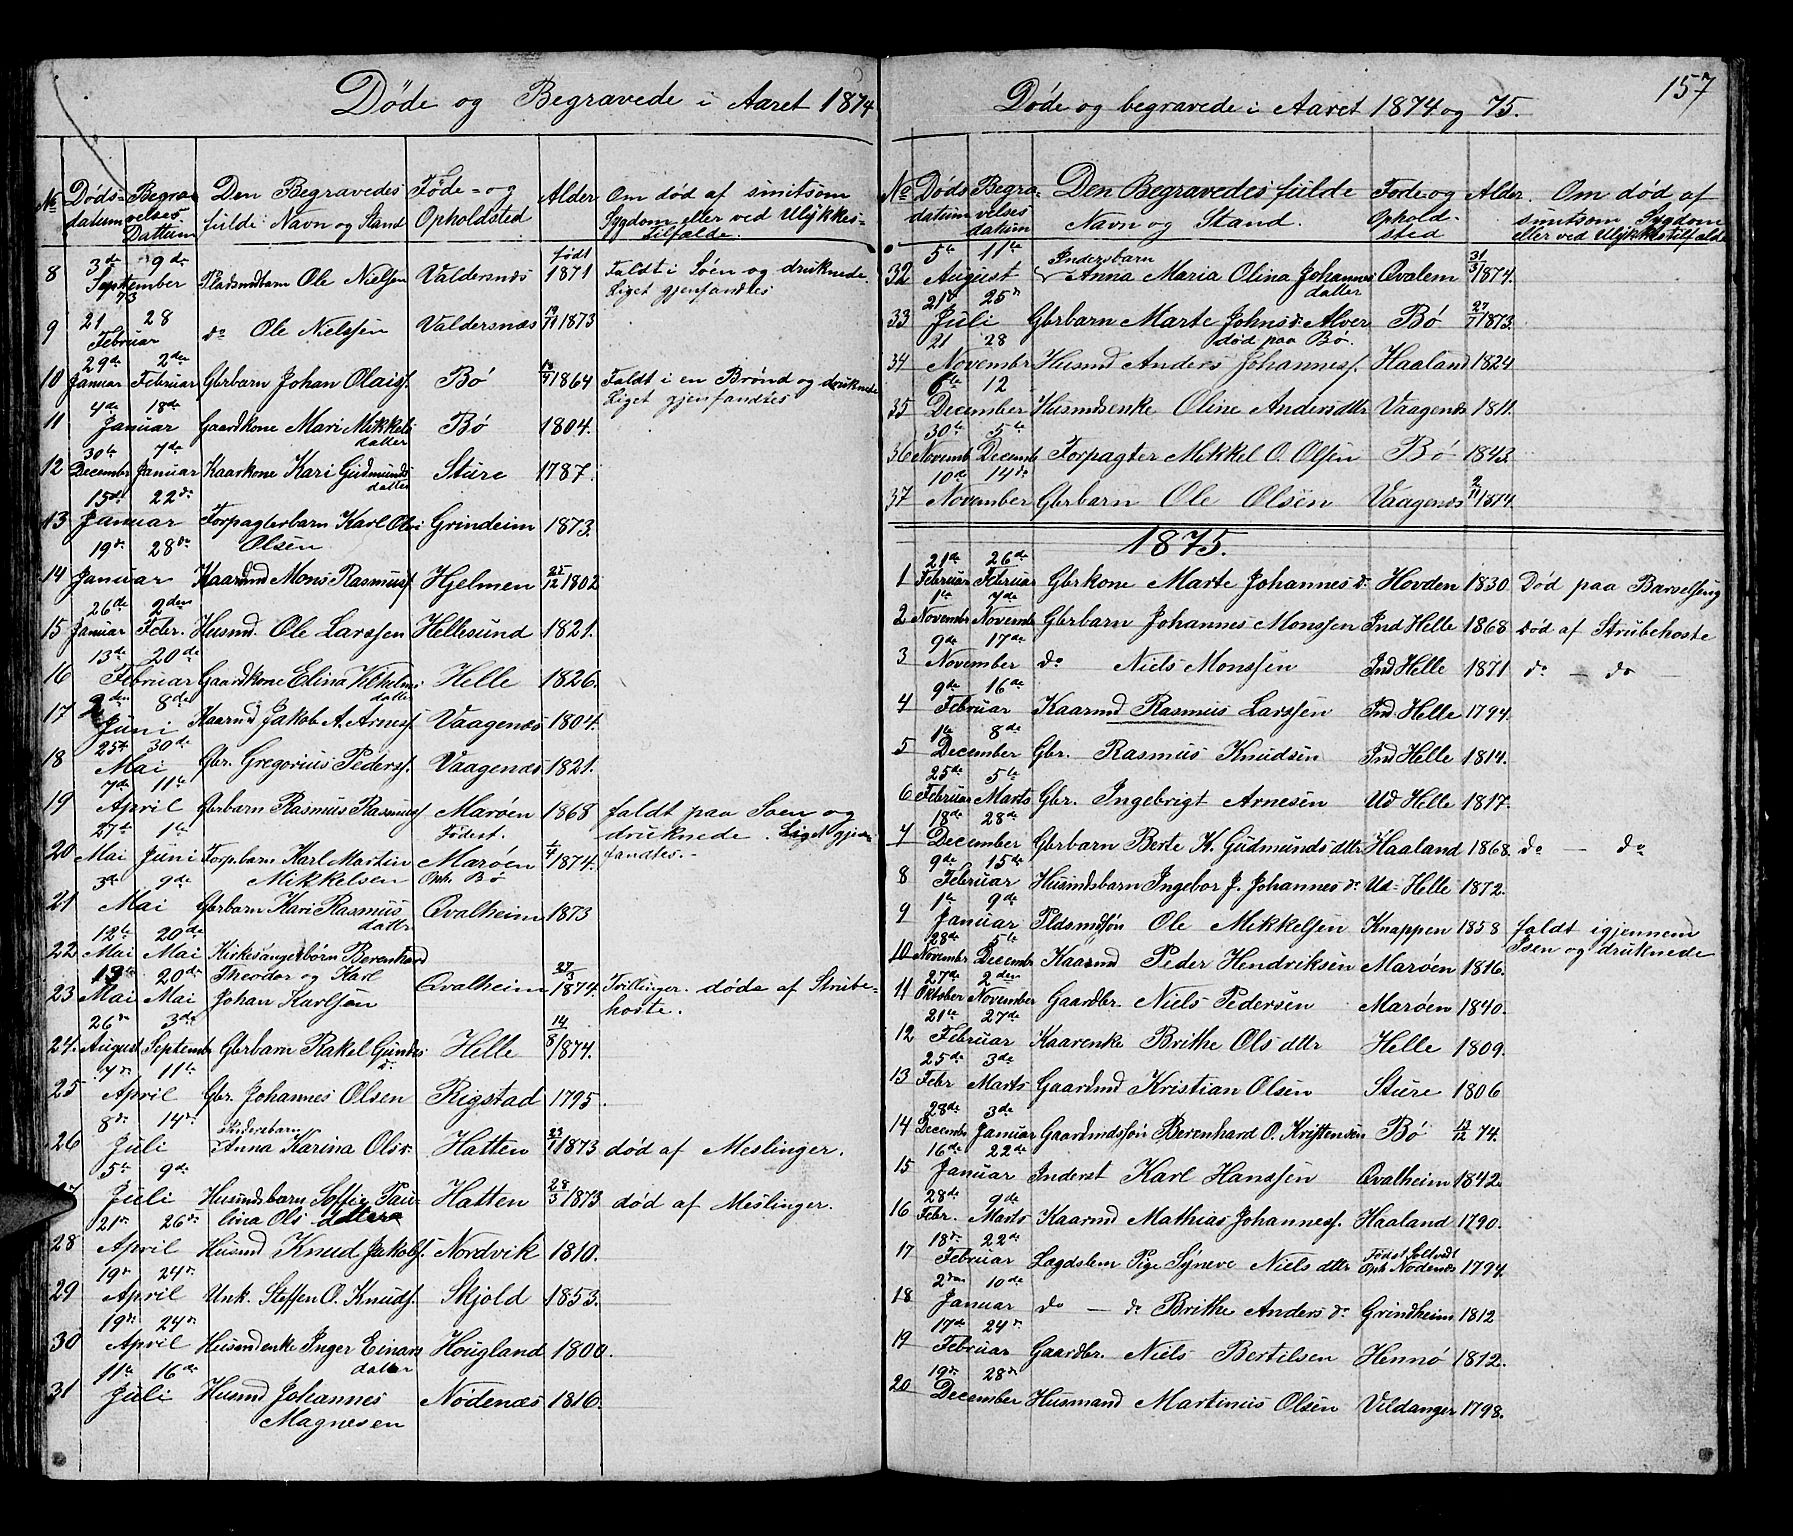 Døde og Begravede i Aaret 1874
No Døds-datum Begravelses Dattum Den Begravedes fulde Navn og Stand Føde- og Opholdsted Alder Om død af smitsom Sygdom eller ved Ulykkes-Tilfælde.
8 3de 9de September 73 Pladsmdbarn Ole Nielsen Valdersnæs født 1871 Faldt i Søen og druknede. Liget gjenfandtes
9 21 28 Februar do Ole Nielsen Valdersnæs 1873
10 29de Januar 2den Februar Gbrbarn Johan Olaiss. Bø 1864 Faldt i en Brønd og druknede Liget gjenfandtes
11 4de 18de Januar Gaardkone Mari Mikkelsdatter Bø 1804.
12 30te Decembr 7de Januar Kaarkone Kari Gudmundsdatter Sture 1787.
13 15de 22de Januar Forpagterbarn Karl Olai Olsen Grindeim 1873.
14 19de 28de Januar Kaarmd Mons Rasmuss. Hjelmen 25/12 1802
15 26de Januar 2den Febr. Husmd. Ole Larssen Hellesund 1821.
16 13de 20de Februar Gaardkone Elina Vilhelmsdatter Helle 1826.
17 2den 8de Juni Kaarmd Jakob A. Arness. Vaagenæs 1804.
18 25de 30de Mai Gbr. Gregorius Pederss. Vaagenæs 1821.
19 7de 11te April Gbrbarn Rasmus Rasmuss Marøen 1868 faldt paa Søen og druknede. Liget gjenfandtes.-
20 27de Mai 1te Juni Forpbarn Karl Martin Mikkelsen Fødest. Marøen Oph. Bø 1874.
21 3de 9de Mai Gbrbarn Kari Rasmusdatter Qvalheim 1873
22 12te Mai 20de Mai Kirkesangerbørn Berenhard
23 Mai 20de Mai Theodor og Karl Johan Karlsen Qvalheim 27/3 1874. Trillinger. døde af Strubehoste.
24. 26de August 3de Septembr Gbrbarn Rakel Gundersd. Helle 14/8 1874.
25 7de 11te April Gbr. Johannes Olsen Rigstad 1795.
26 8de 14de Juli Inderstbarn Anna Karina Olsd. Hatten 23/1 1873 død af Meslinger.
27 5te 9de Juli Husmdsbarn Soffie Paulina Ols datter Hatten 28/3 1873 død af Meslinger.
28 21de 26de April Husmd Knud Jakobs. Nordvik 1810.
29 19de 24de April Unk. Steffen O. Knuds. Skjold 1853.
30 19de 24de April Husmdenke Inger Einarsdatter Hougland 1800.
31 11te 16de Juli Husmd Johannes Magnesen Nødenæs 1816.
157
Døde og begravede i Aaret 1874 og 75.
No Døds datum Begravelses datum Den Begravedes fulde Navn og Stand. Føde og Opholdsted Alder. Om død af smitsom Sygdom eller ved Ulykkestilfælde
32 5te 11te August Inderstbarn Anna Maria Olina Johannesdatter Qvalem 31/3 1874.
33 21de 25de Juli Gbrbarn Marte Johnsd. Alver død paa Bø. Bø 27/7 1873.
34 21 28 Novembr Husmd Anders Johanness. Haaland 1824.
35 6te 12 December Husmdsenke Oline Andersdttr Vaagenæs 1811.
36 30te Novemb 5te Decemb Forpagter Mikkel O. Olsen Bø 1843.
37 10de 14de November Gbrbarn Ole Olsen Vaagenæs 2/11 1874.
1875.
1 21de Februar 26de Februar Gbrkone Marte Johannesd. Hovden 1830 Død paa Barselseng
2 1te Novembr 7de Novemb Gbrbarn Johannes Monssen Ind Helle 1868 Død af Strubehoste
3 9de 17de November do Niels Monssen Ind Helle 1871 do - do -
4 9de 16de Februar Kaarmd Rasmus Larssen Ind Helle 1794.
5 1te 8de December Gbr. Rasmus Knudsen Ind Helle 1814.
6 25de Februar 5te Marts Gbr. Ingebrigt Arnesen Ud Helle 1817.
7 18de 28de December Gbrbarn Berte K. Gudmunds dttr Haaland 1868. do - do
8 9de 15de Februar Husmdsbarn Ingebor J. Johannesd. Ud Helle 1872.
9 1te 9de Januar Pldsmdsøn Ole Mikkelsen Knappen 1858 faldt igjennem Isen og druknede
10 28de Novembr 5te Decembr Kaarmd Peder Hendriksen Marøen 1816.
11 27de Oktober 2den November Gaardbr. Niels Pedersen Marøen 1840.
12 21te 27de Februar Kaarenke Brithe Ols dttr Helle 1809.
13 25de Febr 3de Marts Gaardmd Kristian Olsen Sture 1806
14 28de Decembr 3de Januar Gaardmdssøn Berenhard O. Kristensen Bø 13/12 74.
15 16de 22de Januar Inderst Karl Hanssen Qvalheim 1842.
16 28de Febr. 9de Marts Kaarmd Mathias Johanness. Haaland 1790.
17 18de 22de Februar Lægdslem Pige Syneve Niels dttr Født Soltvedt Oph. Nødenæs 1794.
18 2den 10de Januar do - do Brithe Anders d. Grindheim 1812
19 17de 24de Februar Gaardbr. Niels Bertelsen Hennø 1812.
20 19de 28de December Husmand Martinus Olsen Vildanger 1798.